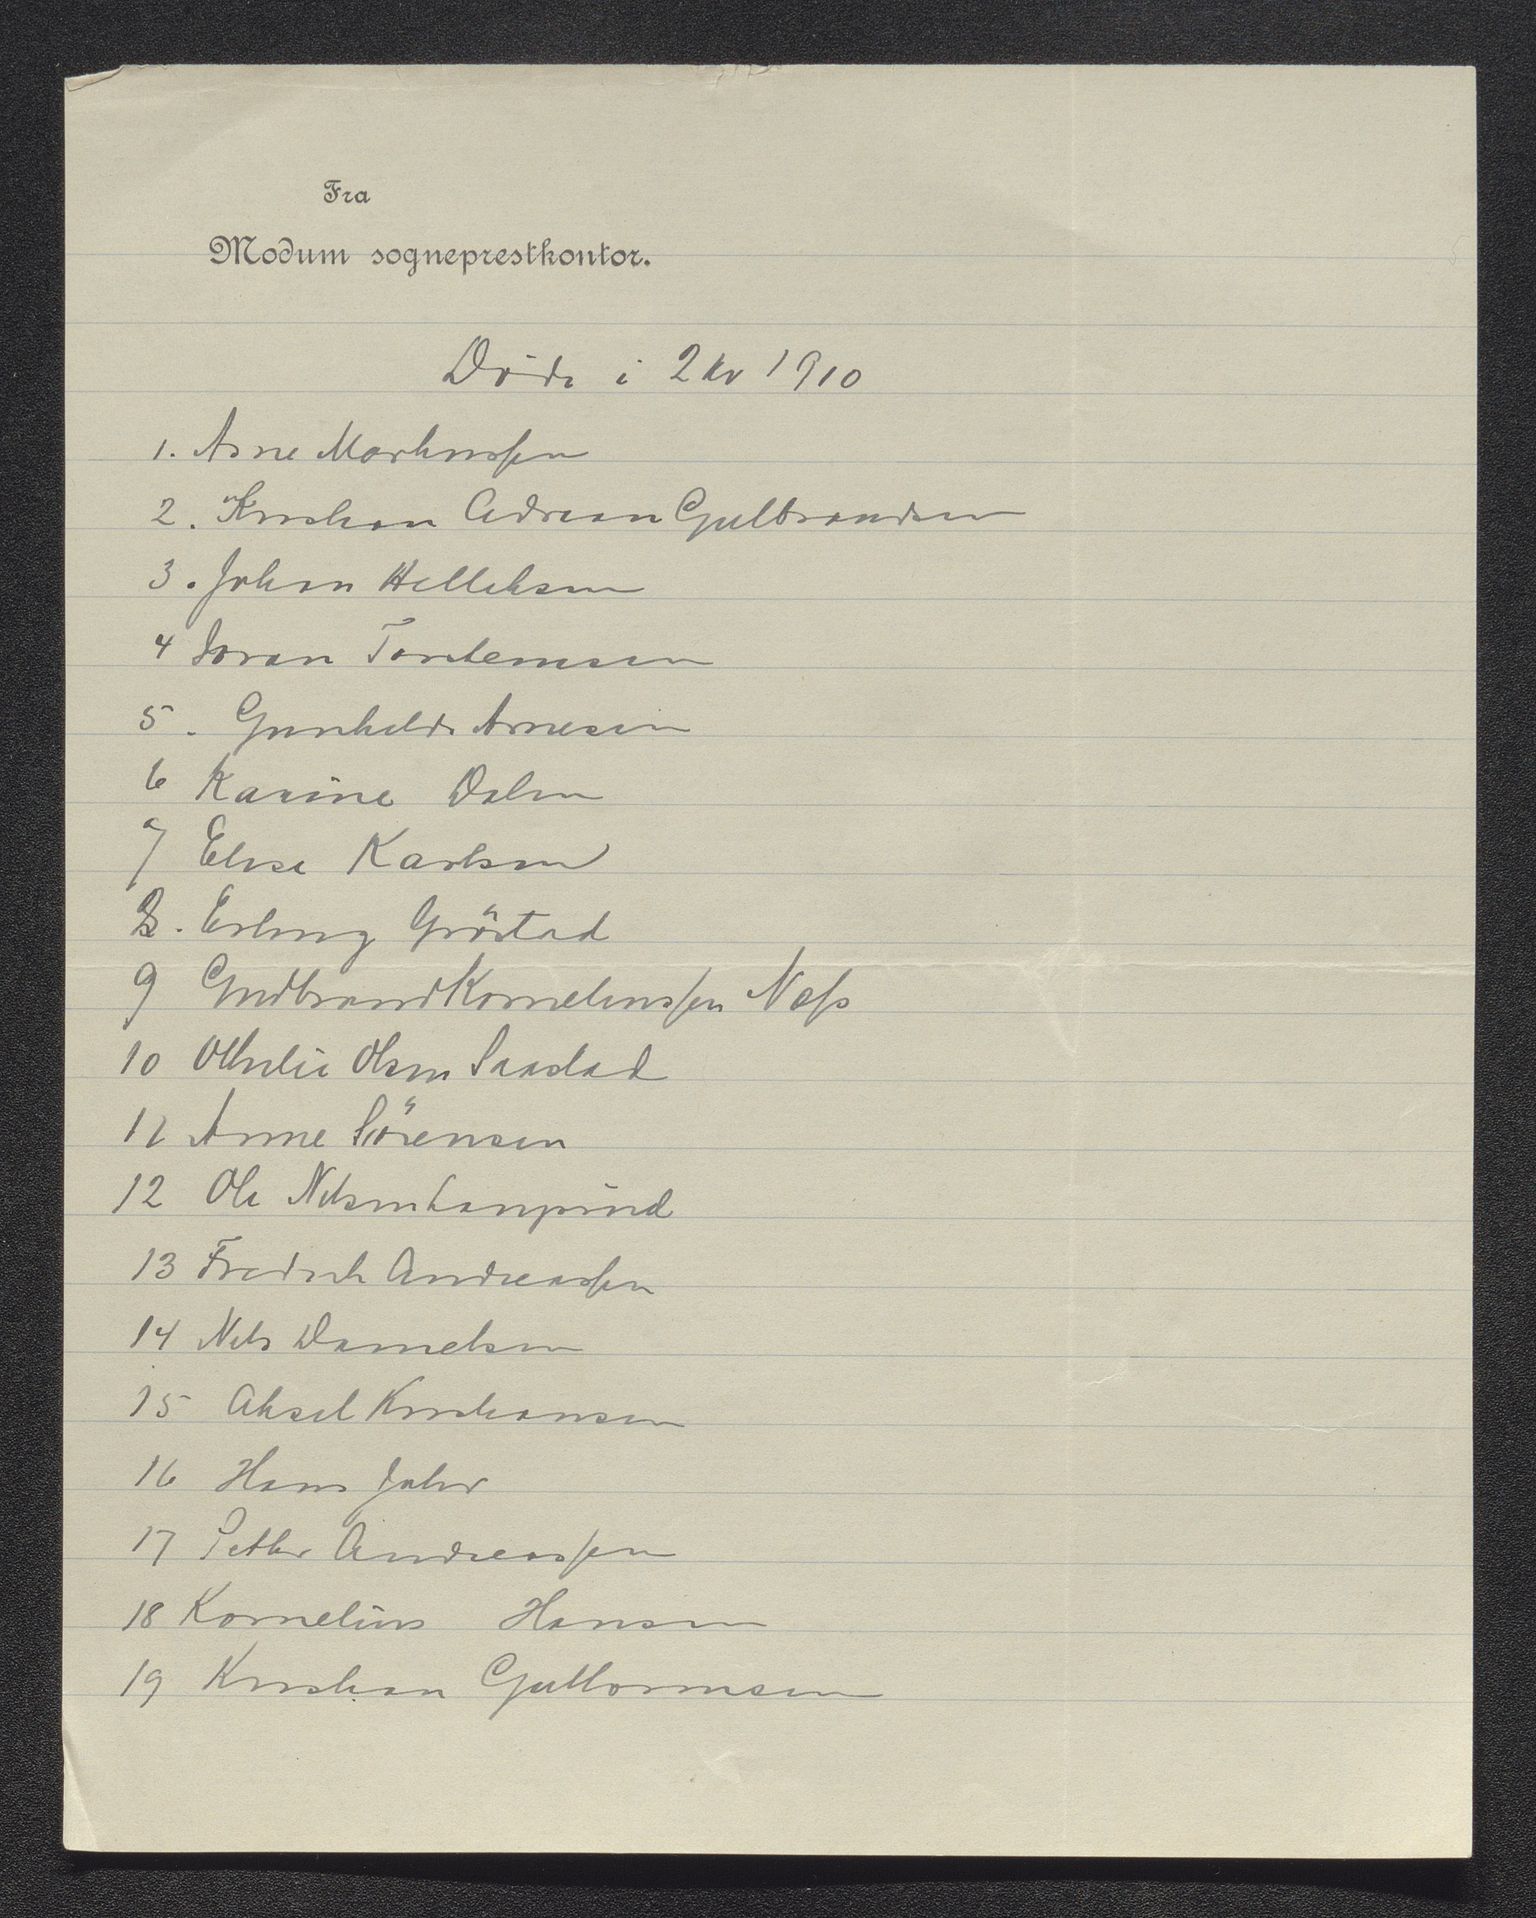 Fra
Modum sogneprestkontor.
Døde i 2 kv 1910
1. Arne Martinssen
2. Kristian Adrian Gulbrandsen
3. Johan Helleksen
4 Joran Torstensen
5. Gunhild Arnesen
6 Karine Dalen
7 Elise Karlsen
8. Erling Gröstad
9 Gudbrand Kornelinssen Næss
10 Othelie Olsen Saastad
11 Anne Sörensen
12 Ole Nilsen
13 Fredrik Andreassen
14 Nils Danielsen
15 Aksel Kristiansen
16 Hans Jahr
17 Petter Andreassen
18 Kornelius Hansen
19 Kristian Guttormsen